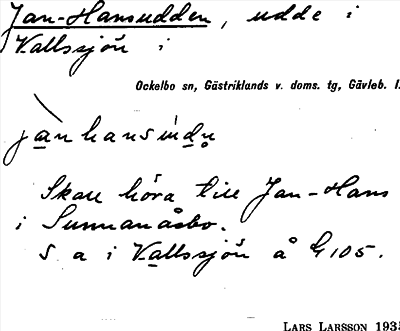 Jan-Hansudden, udde i
Vallssjön i
Ockelbo sn, Gästriklands v. doms. tg, Gävleb. l.
Skall höra till Jan-Hans
i Sunnanåsbo.
S a i Vallssjön å G 105.
LARS LARSSON 1935